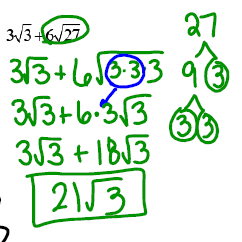 3√3 + 6√27
3√3 + 6√3·3 3
3√3 + 6·3√3
3√3 + 18√3
21√3
27
9 3
3 3